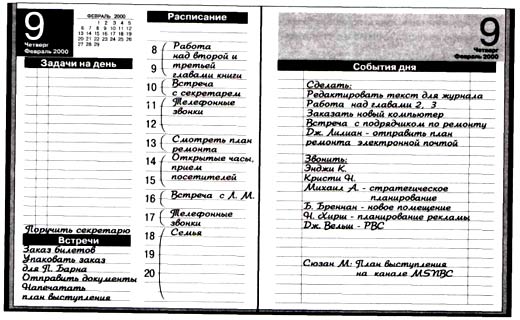 9
Четверг
Февраль 2000
ФЕВРАЛЬ 2000
1 2 3 4 5
6 7 8 9 10 11 12
13 14 15 16 17 18 19
20 21 22 23 24 25 26
27 28 29
Задачи на день
Поручить секретарю
Встречи
Заказ билетов
Упаковать заказ
для П. Барна
Отправить документы
Напечатать
план выступления
Расписание
8 Работа
над второй и
9 третьей
главами книги
10 Встреча
с секретарем
11 Телефонные
звонки
12
13 Смотреть план
ремонта
14 Открытые часы,
прием
15 посетителей
16 Встреча с Л. М.
17 Телефонные
звонки
18 Семья
19
20
9
Четверг
Февраль 2000
События дня
Сделать:
Редактировать текст для журнала
Работа над главами 2, 3
Заказать новый компьютер
Встреча с подрядчиком по ремонту
Дж. Лилиан - отправить план
ремонта электронной почтой
Звонить:
Энджи К.
Кристи Н.
Михаил А. - стратегическое
планирование
Б. Бреннан - новое помещение
Н. Хирш - планирование рекламы
Дж. Вельш - РВС
Сюзан М: План выступления
на канале MSNBC